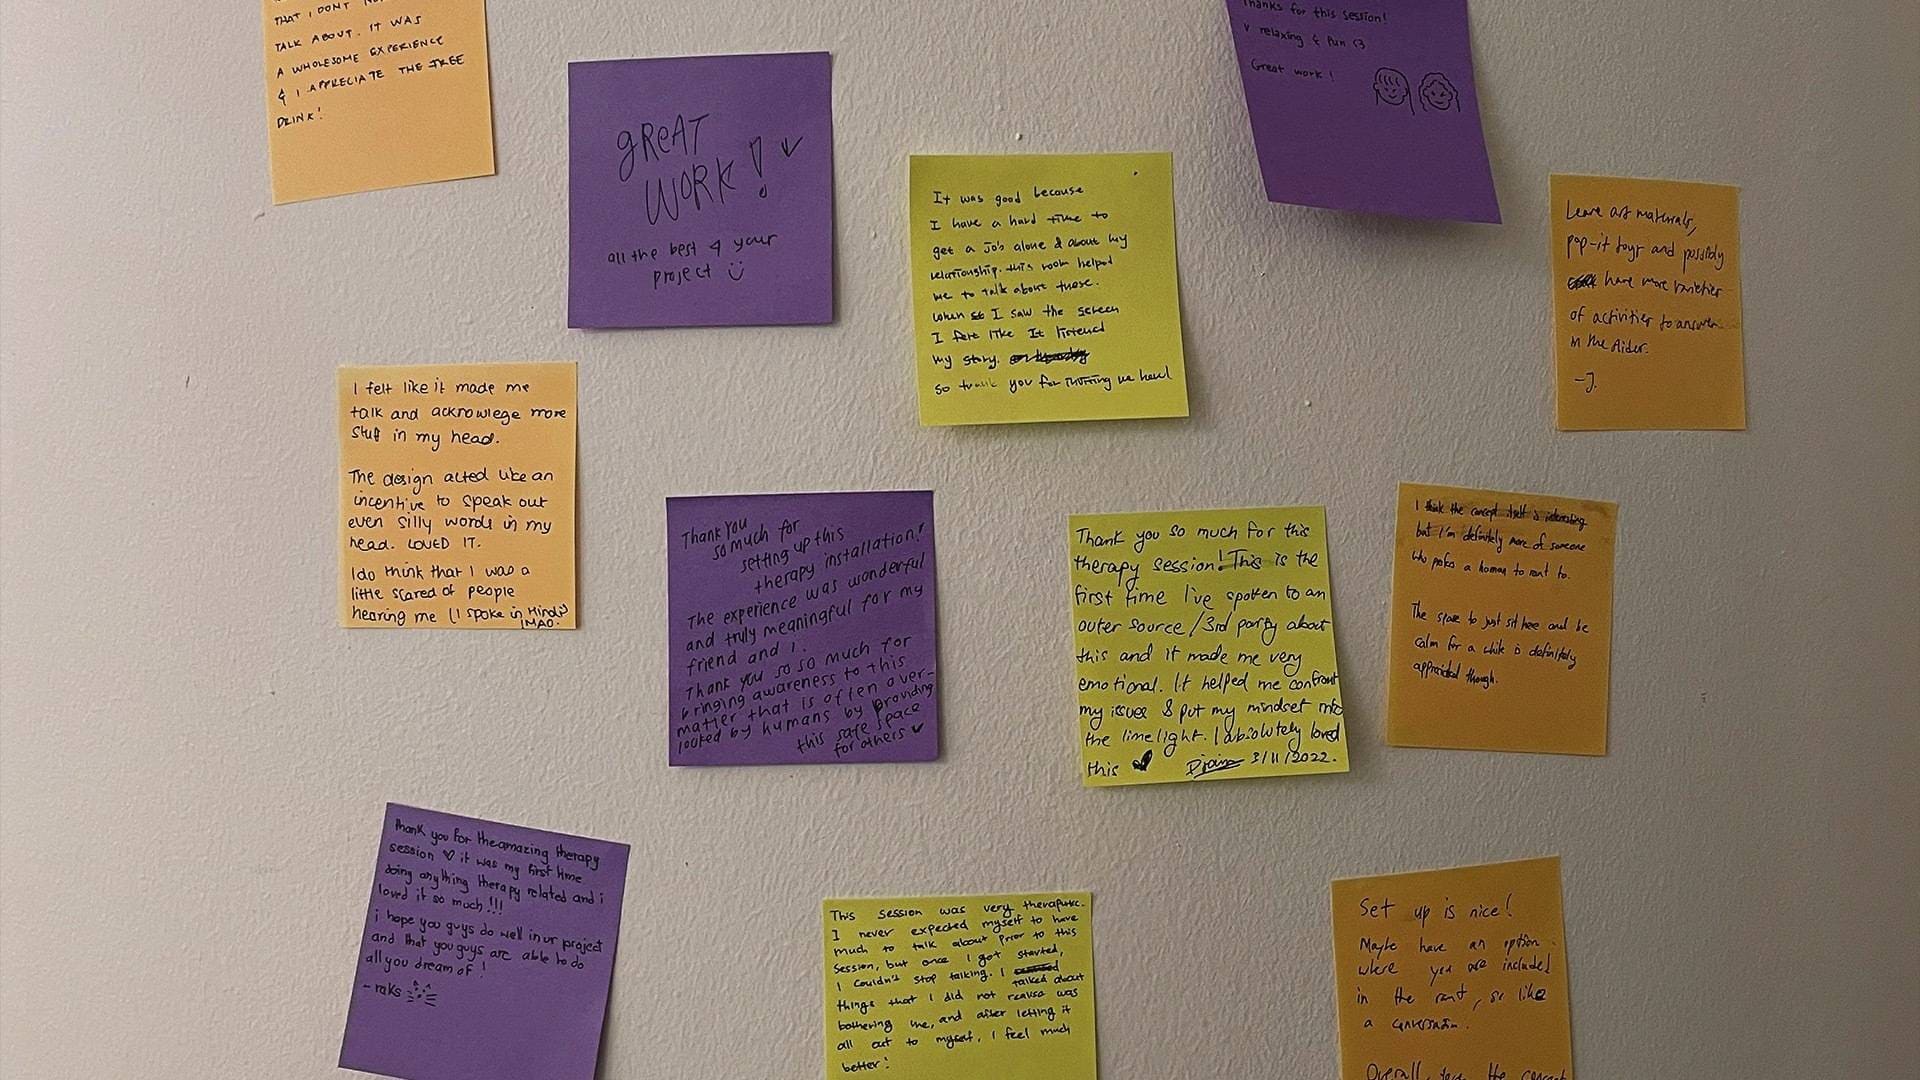 THAT I DONT
TALK ABOUT. IT WAS
A WHOLESOME EXPERIENCE
& I APPRECIATE THE FREE
DRINK!
GREAT
WORK!
all the best 4 your
project
Thanks for this session!
v relaxing & fun <3
Great work!
It was good because
I have a hard time to
get a job alone & about my
relationship. this room helped
me to talk about these.
When I saw the screen
I felt like It listened
my story.
so thank you for
Leave art materials,
pop-it toys and possibly
have more varieties
of activities to answer
in the Aider.
-J.
I felt like it made me
talk and acknowlege more
stuff in my head.
The design acted like an
incentive to speak out
even silly words in my
head. LOVED IT.
I do think that I was a
little scared of people
hearing me (I spoke in Hindi)
LMAO.
Thank you
so much for
setting up this
therapy installation!
The experience was wonderful
and truly meaningful for my
friend and I.
Thank you so so much for
bringing awareness to this
matter that is often over-
looked by humans by providing
this safe space
for others
Thank you so much for this
therapy session! This is the
first time I've spoken to an
outer source/3rd party about
this and it made me very
emotional. It helped me confront
my issues & put my mindset into
the limelight. I absolutely loved
this
3/11/2022.
I think the concept itself is interesting
but I'm definitely more of someone
who a human to rant to.
The space to just sit here and be
calm for a while is definitely
appreciated though.
thank you for the amazing therapy
session it was my first time
doing anything therapy related and i
loved it so much!!!
i hope you guys do well in ur project
and that you guys are able to do
all you dream of!
- raks
This session was very therapeutic.
I never expected myself to have
much to talk about prior to this
session, but once I got started,
I couldn't stop talking. I talked about
things that I did not realise was
bothering me, and after letting it
all out to myself, I feel much
better!
Set up is nice!
Maybe have an option
where you are included
in the rant, or like
a conversation.
Overall, the concept